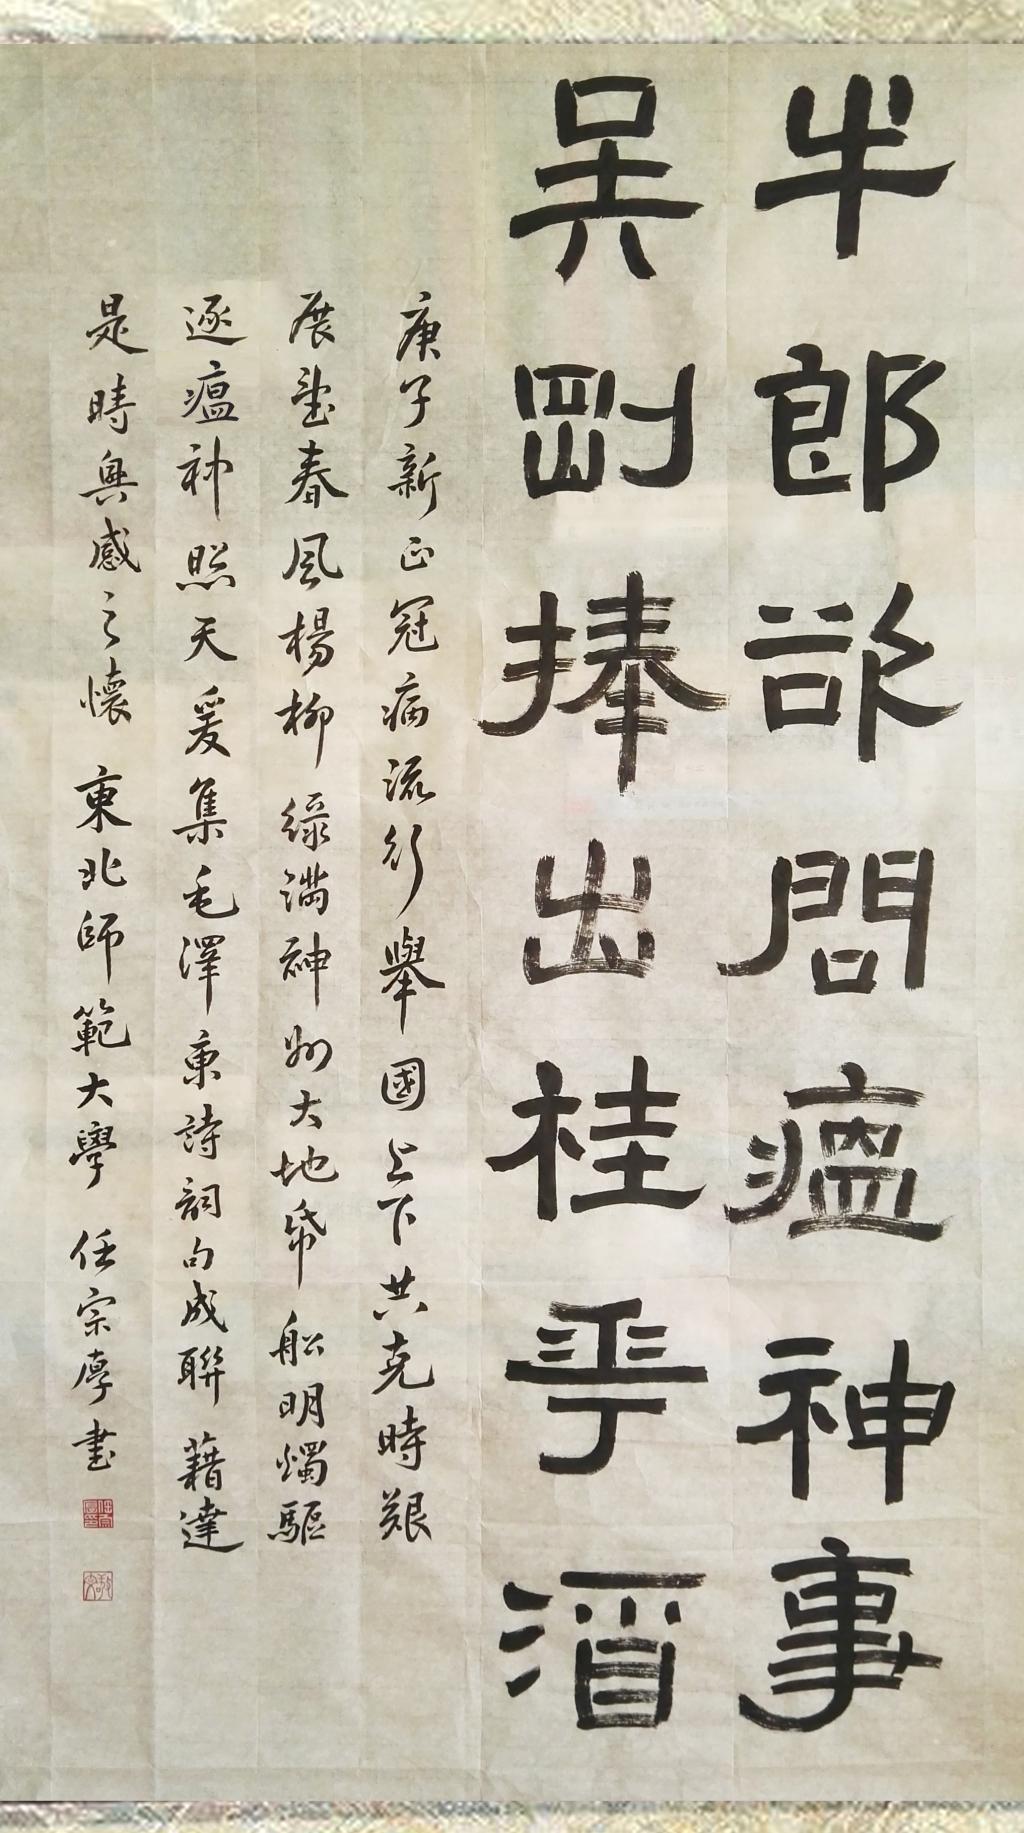 牛郎欲問瘟神事
吳剛捧出桂華酒
庚子新正冠病流行舉國上下共克時艱
展望春風楊柳綠滿神州大地紙船明燭驅
逐瘟神照天爰集毛澤東詩詞句成聯藉達
是時興感之懷東北師範大學任宗厚書